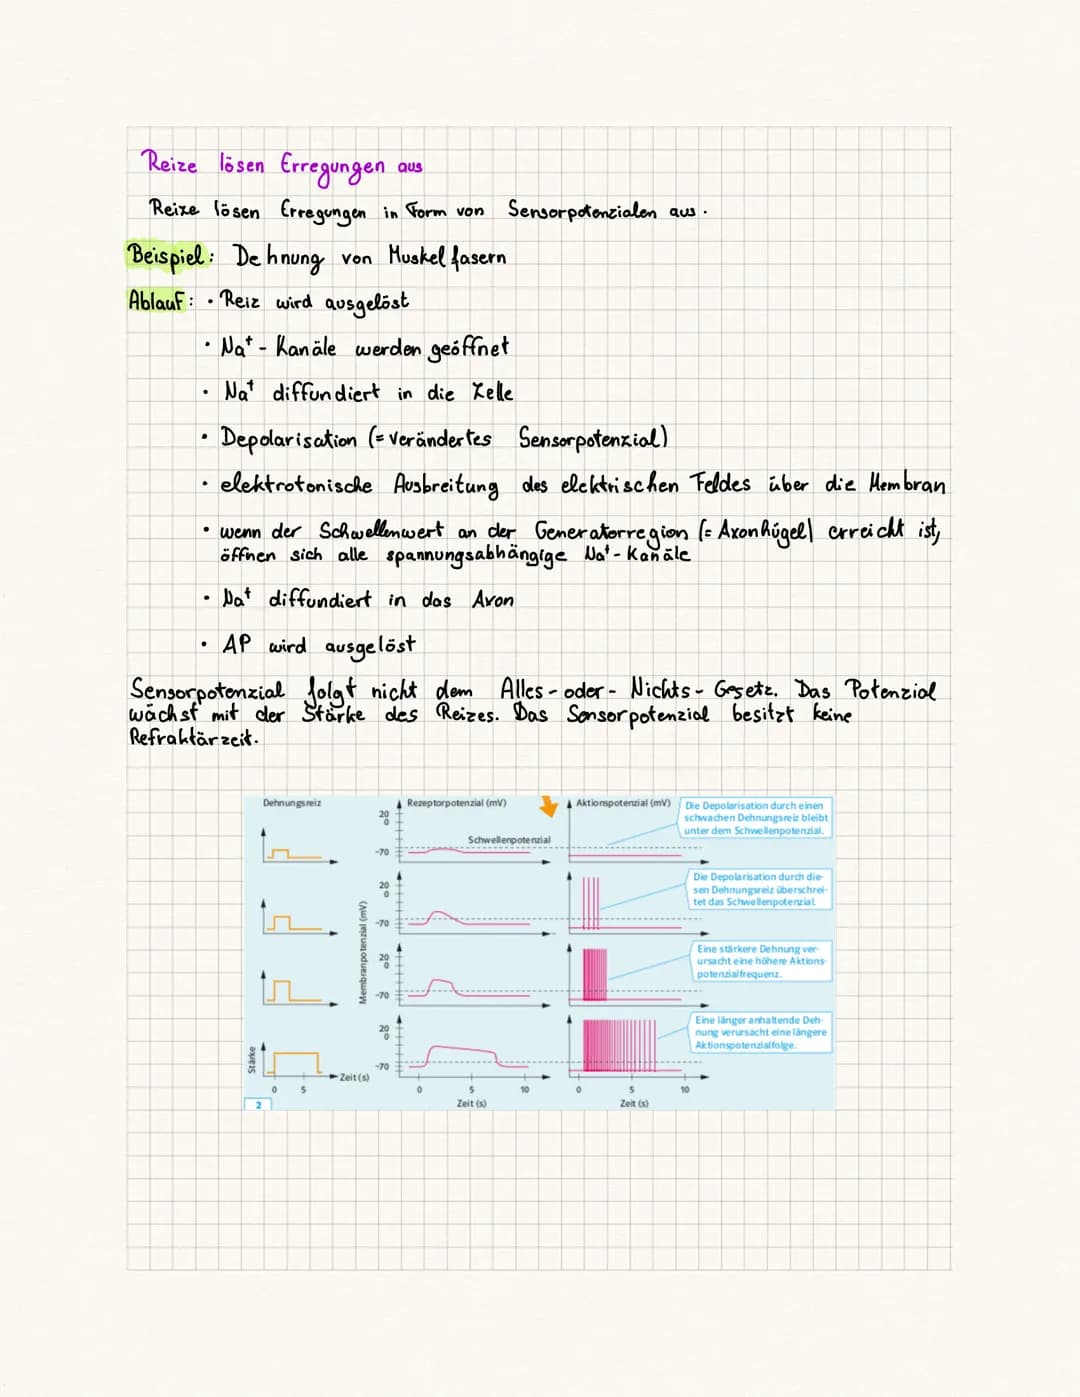 Reize lösen Erregungen aus
Reize lösen Erregungen in Form von Sensorpotenzialen aus.
Beispiel: Dehnung von Muskelfasern
Ablauf: • Reiz wird ausgelöst
• Na⁺ - Kanäle werden geöffnet
• Na⁺ diffundiert in die Zelle
• Depolarisation (= verändertes Sensorpotenzial)
• elektrotonische Ausbreitung des elektrischen Feldes über die Membran
• wenn der Schwellenwert an der Generatorregion (= Axonhügel) erreicht ist,
öffnen sich alle spannungsabhängige Na⁺ - Kanäle
• Na⁺ diffundiert in das Axon
• AP wird ausgelöst
Sensorpotenzial folgt nicht dem Alles - oder - Nichts - Gesetz. Das Potenzial
wächst mit der Stärke des Reizes. Das Sensorpotenzial besitzt keine
Refraktärzeit.
Dehnungsreiz
Rezeptorpotenzial (mV)
Aktionspotenzial (mV)
Die Depolarisation durch einen
schwachen Dehnungsreiz bleibt
unter dem Schwellenpotenzial.
20
0
Schwellenpotenzial
-70
Die Depolarisation durch die-
sen Dehnungsreiz überschrei-
tet das Schwellenpotenzial.
20
0
-70
Membranpotenzial (mV)
Eine stärkere Dehnung ver-
ursacht eine höhere Aktions-
potenzialfrequenz.
20
0
-70
Eine länger anhaltende Deh-
nung verursacht eine längere
Aktionspotenzialfolge.
20
0
-70
Stärke
Zeit (s)
0 5
0 5 10
0 5 10
Zeit (s)
Zeit (s)
2